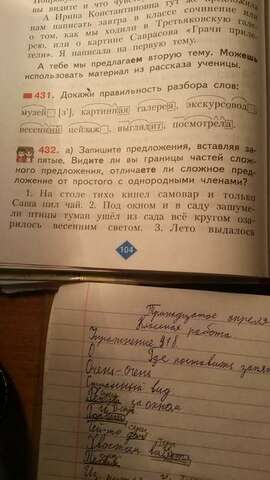 А Ирина Константиновна тут же предложила
нам написать завтра в классе сочинение или
о том, как мы ходили в Третьяковскую гале-
рею, или о картине Саврасова «Грачи приле-
тели». Я написала на первую тему.
А тебе мы предлагаем вторую тему. Можешь
использовать материал из рассказа ученицы.
431. Докажи правильность разбора слов:
музей [з'], картинная галерея, экскурсовод,
весенний пейзаж, выглядит, посмотрела.
432. а) Запишите предложения, вставляя за-
пятые. Видите ли вы границы частей слож-
ного предложения, отличаете ли сложное пред-
ложение от простого с однородными членами?
1. На столе тихо кипел самовар и только
Саша пил чай. 2. Под окном и в саду зашуме-
ли птицы туман ушёл из сада всё кругом оза-
рилось весенним светом. 3. Лето выдалось
104
Тринадцатое апреля
Классная работа
Упражнение 418
Где поставить
вид
за окном